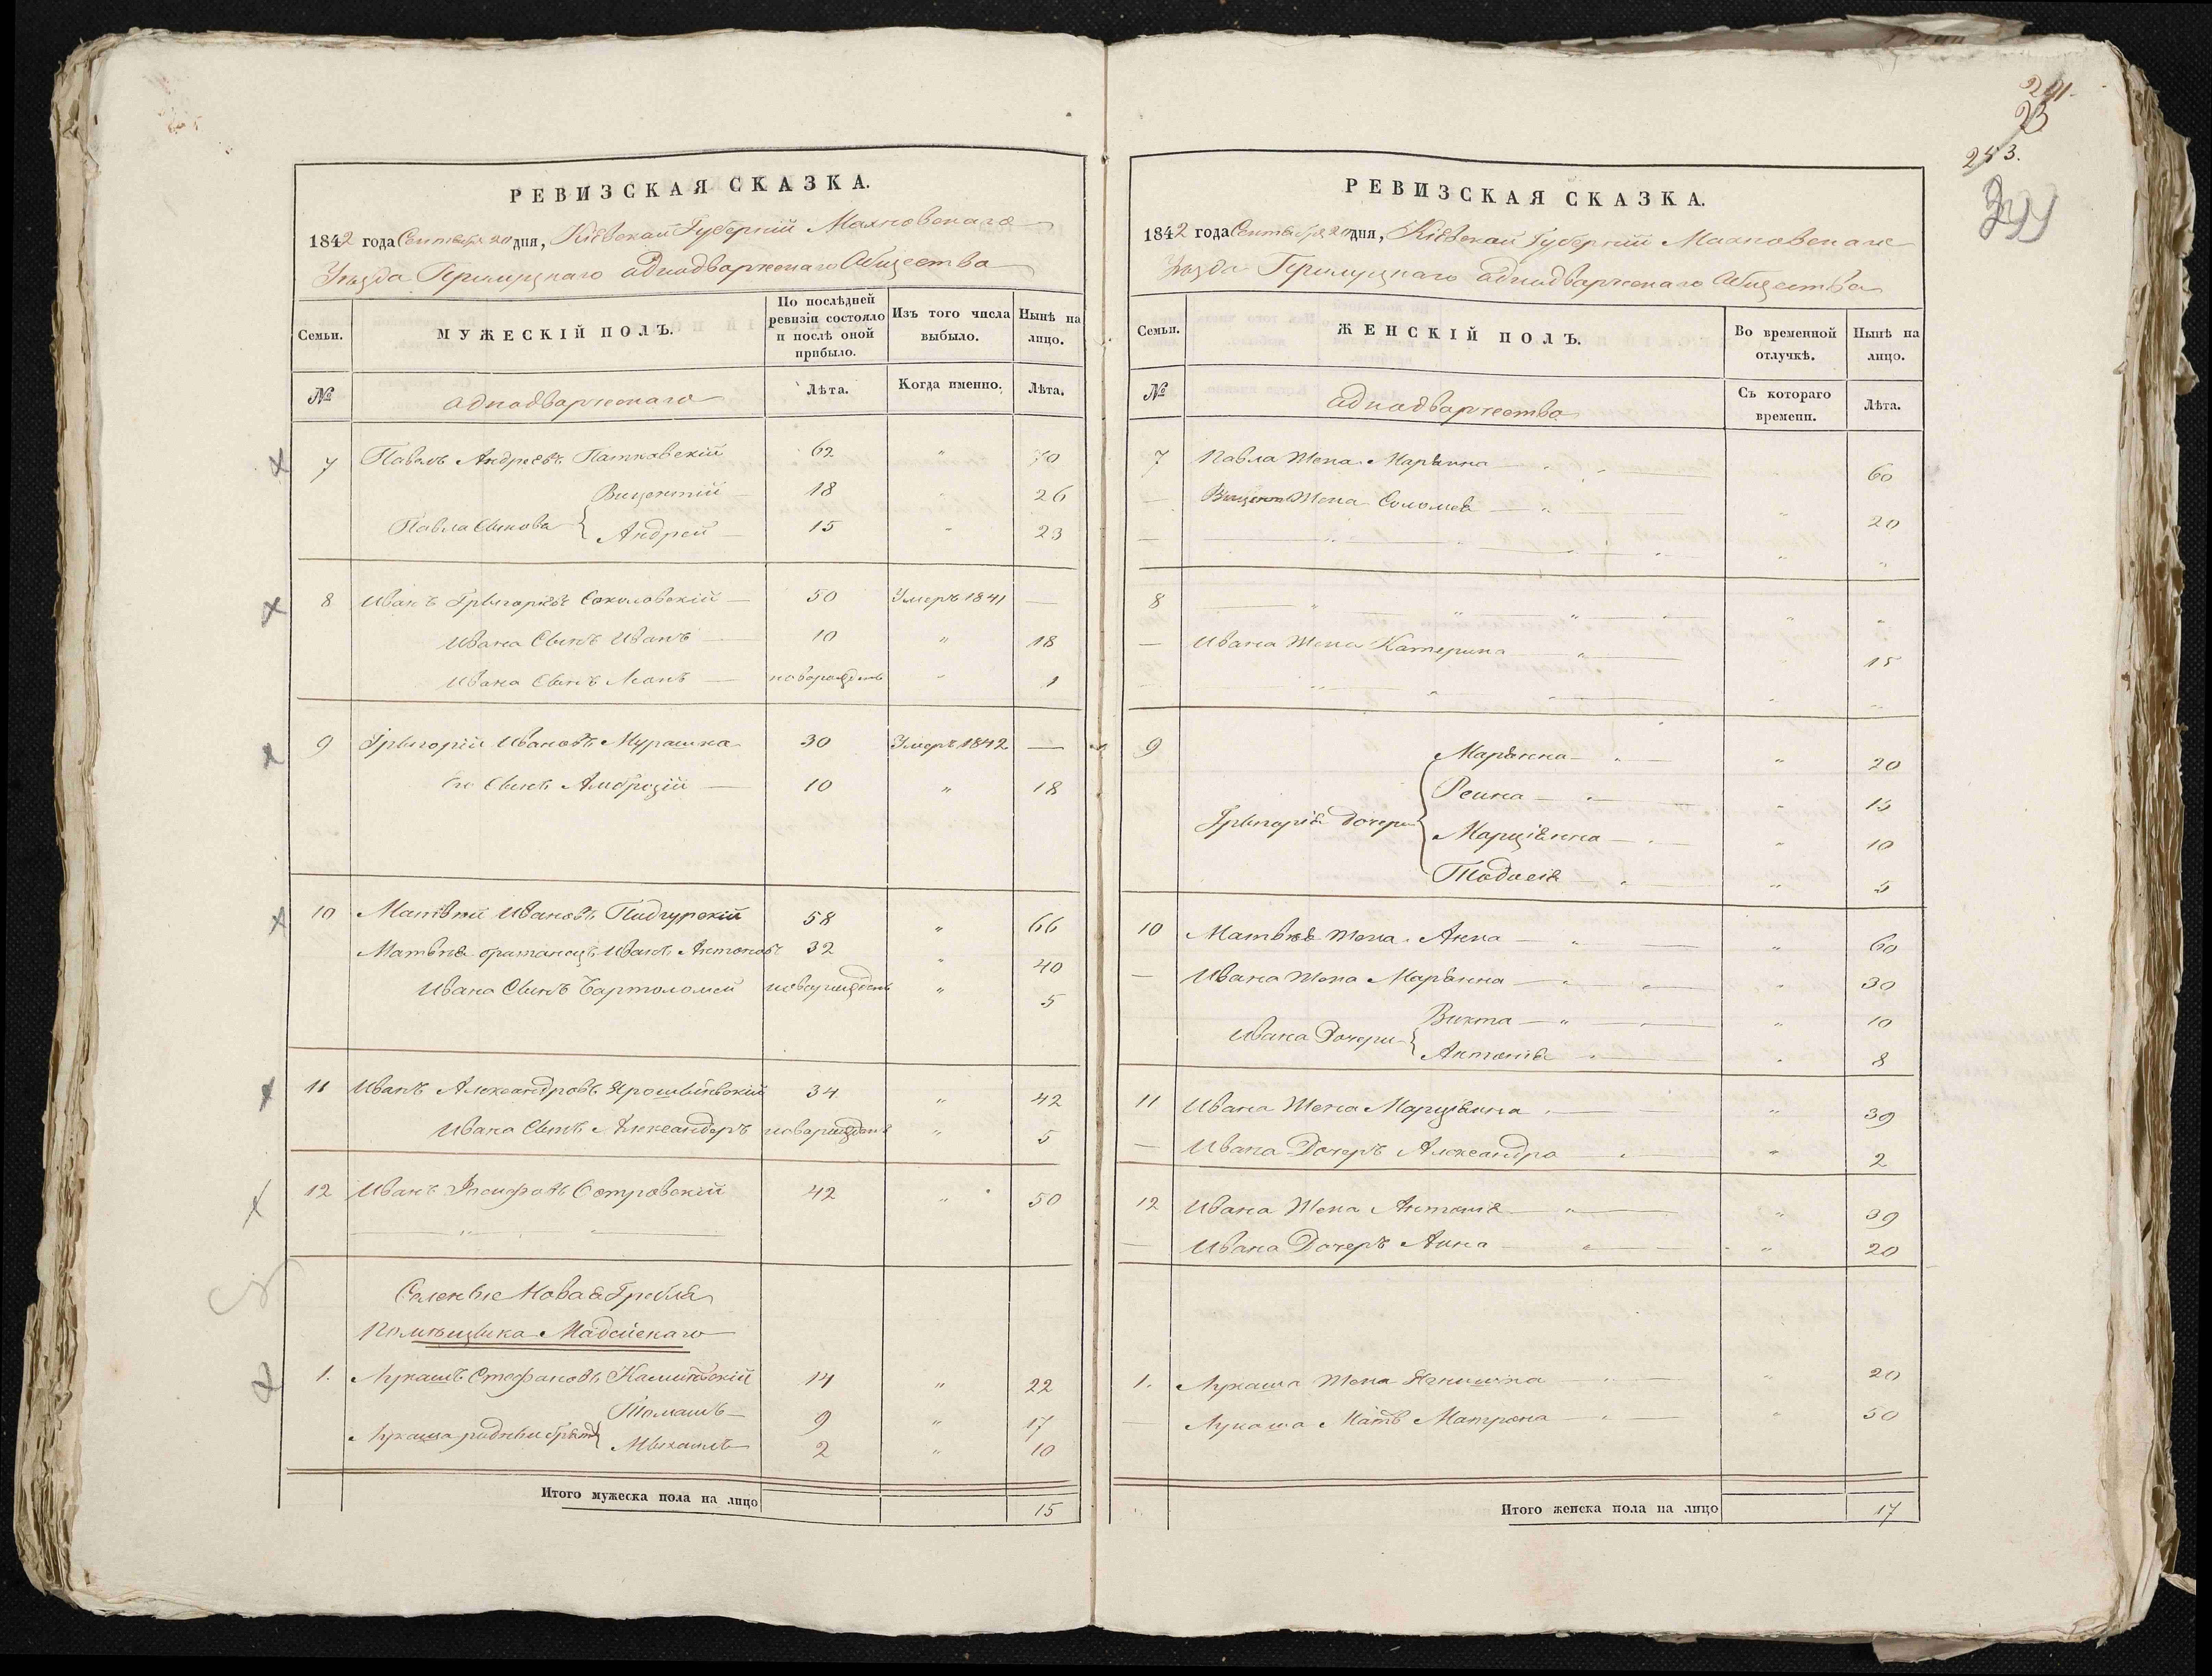 291.
23
253.
РЕВИЗСКАЯ СКАЗКА.
1842 года Сентября 20 дня, Кіевской Губерніи Махновскаго
Уѣзда Прилуцкаго аднадворческаго Общества
Семьи.
МУЖЕСКІЙ ПОЛЪ.
По послѣдней ревизіи состояло и послѣ оной прибыло.
Изъ того числа выбыло.
Нынѣ на лицо.
№
аднадворческаго
Лѣта.
Когда именно.
Лѣта.
7 Павелъ Андреевъ Патковскій 62 " 70
Вицентій 18 " 26
Павла Сынова Андрей 15 " 23
8 Иванъ Грыгорьевъ Соколовскій 50 Умеръ 1841 —
Ивана Сынъ Иванъ 10 " 18
Ивана Сынъ Леонъ новорожденъ " 1
9 Грыгорій Ивановъ Мурашка 30 Умеръ 1842 —
Его Сынъ Амброзій 10 " 18
10 Матвѣй Ивановъ Пидгурскій 58 " 66
Матвѣя братанецъ Иванъ Антоновъ 32 " 40
Ивана Сынъ Бартоломей новорожденъ " 5
11 Иванъ Александровъ 34 " 42
Ивана Сынъ Александеръ новорожденъ " 5
12 Иванъ Іосифовъ Островскій 42 " 50
Селеные Новая Гребля
Помѣщика
1. Лукашъ Стефановъ Каминскій 14 " 22
Томашъ 9 " 17
Лукаша родные братя Мыхаилъ 2 " 10
Итого мужеска пола на лицо 15
РЕВИЗСКАЯ СКАЗКА.
1842 года Сентября 20 дня, Кіевской Губерніи Махновскаго
Уѣзда Прилуцкаго аднадворческаго Общества
Семьи.
ЖЕНСКІЙ ПОЛЪ.
Во временной отлучкѣ.
Нынѣ на лицо.
№
аднадворчества
Съ котораго времени.
Лѣта.
7 Павла Жена Марянна " 60
— Вицент Жена Соломея " 20
8 " "
— Ивана Жена Катерина 15
9 Марянна " 20
Реина " 15
Грыгорія дочери Марціянна " 10
Тодосія " 5
10 Матвѣя Жена Анна " 60
— Ивана Жена Марянна " 30
Викта " 10
Ивана Дочери Антонія " 8
11 Ивана Жена Марціянна " 39
— Ивана Дочеръ Александра " 2
12 Ивана Жена Антонія " 39
— Ивана Дочеръ Анна " 20
1. Лукаша Жена " 20
— Лукаша Мать Матрона " 50
Итого женска пола на лицо 17